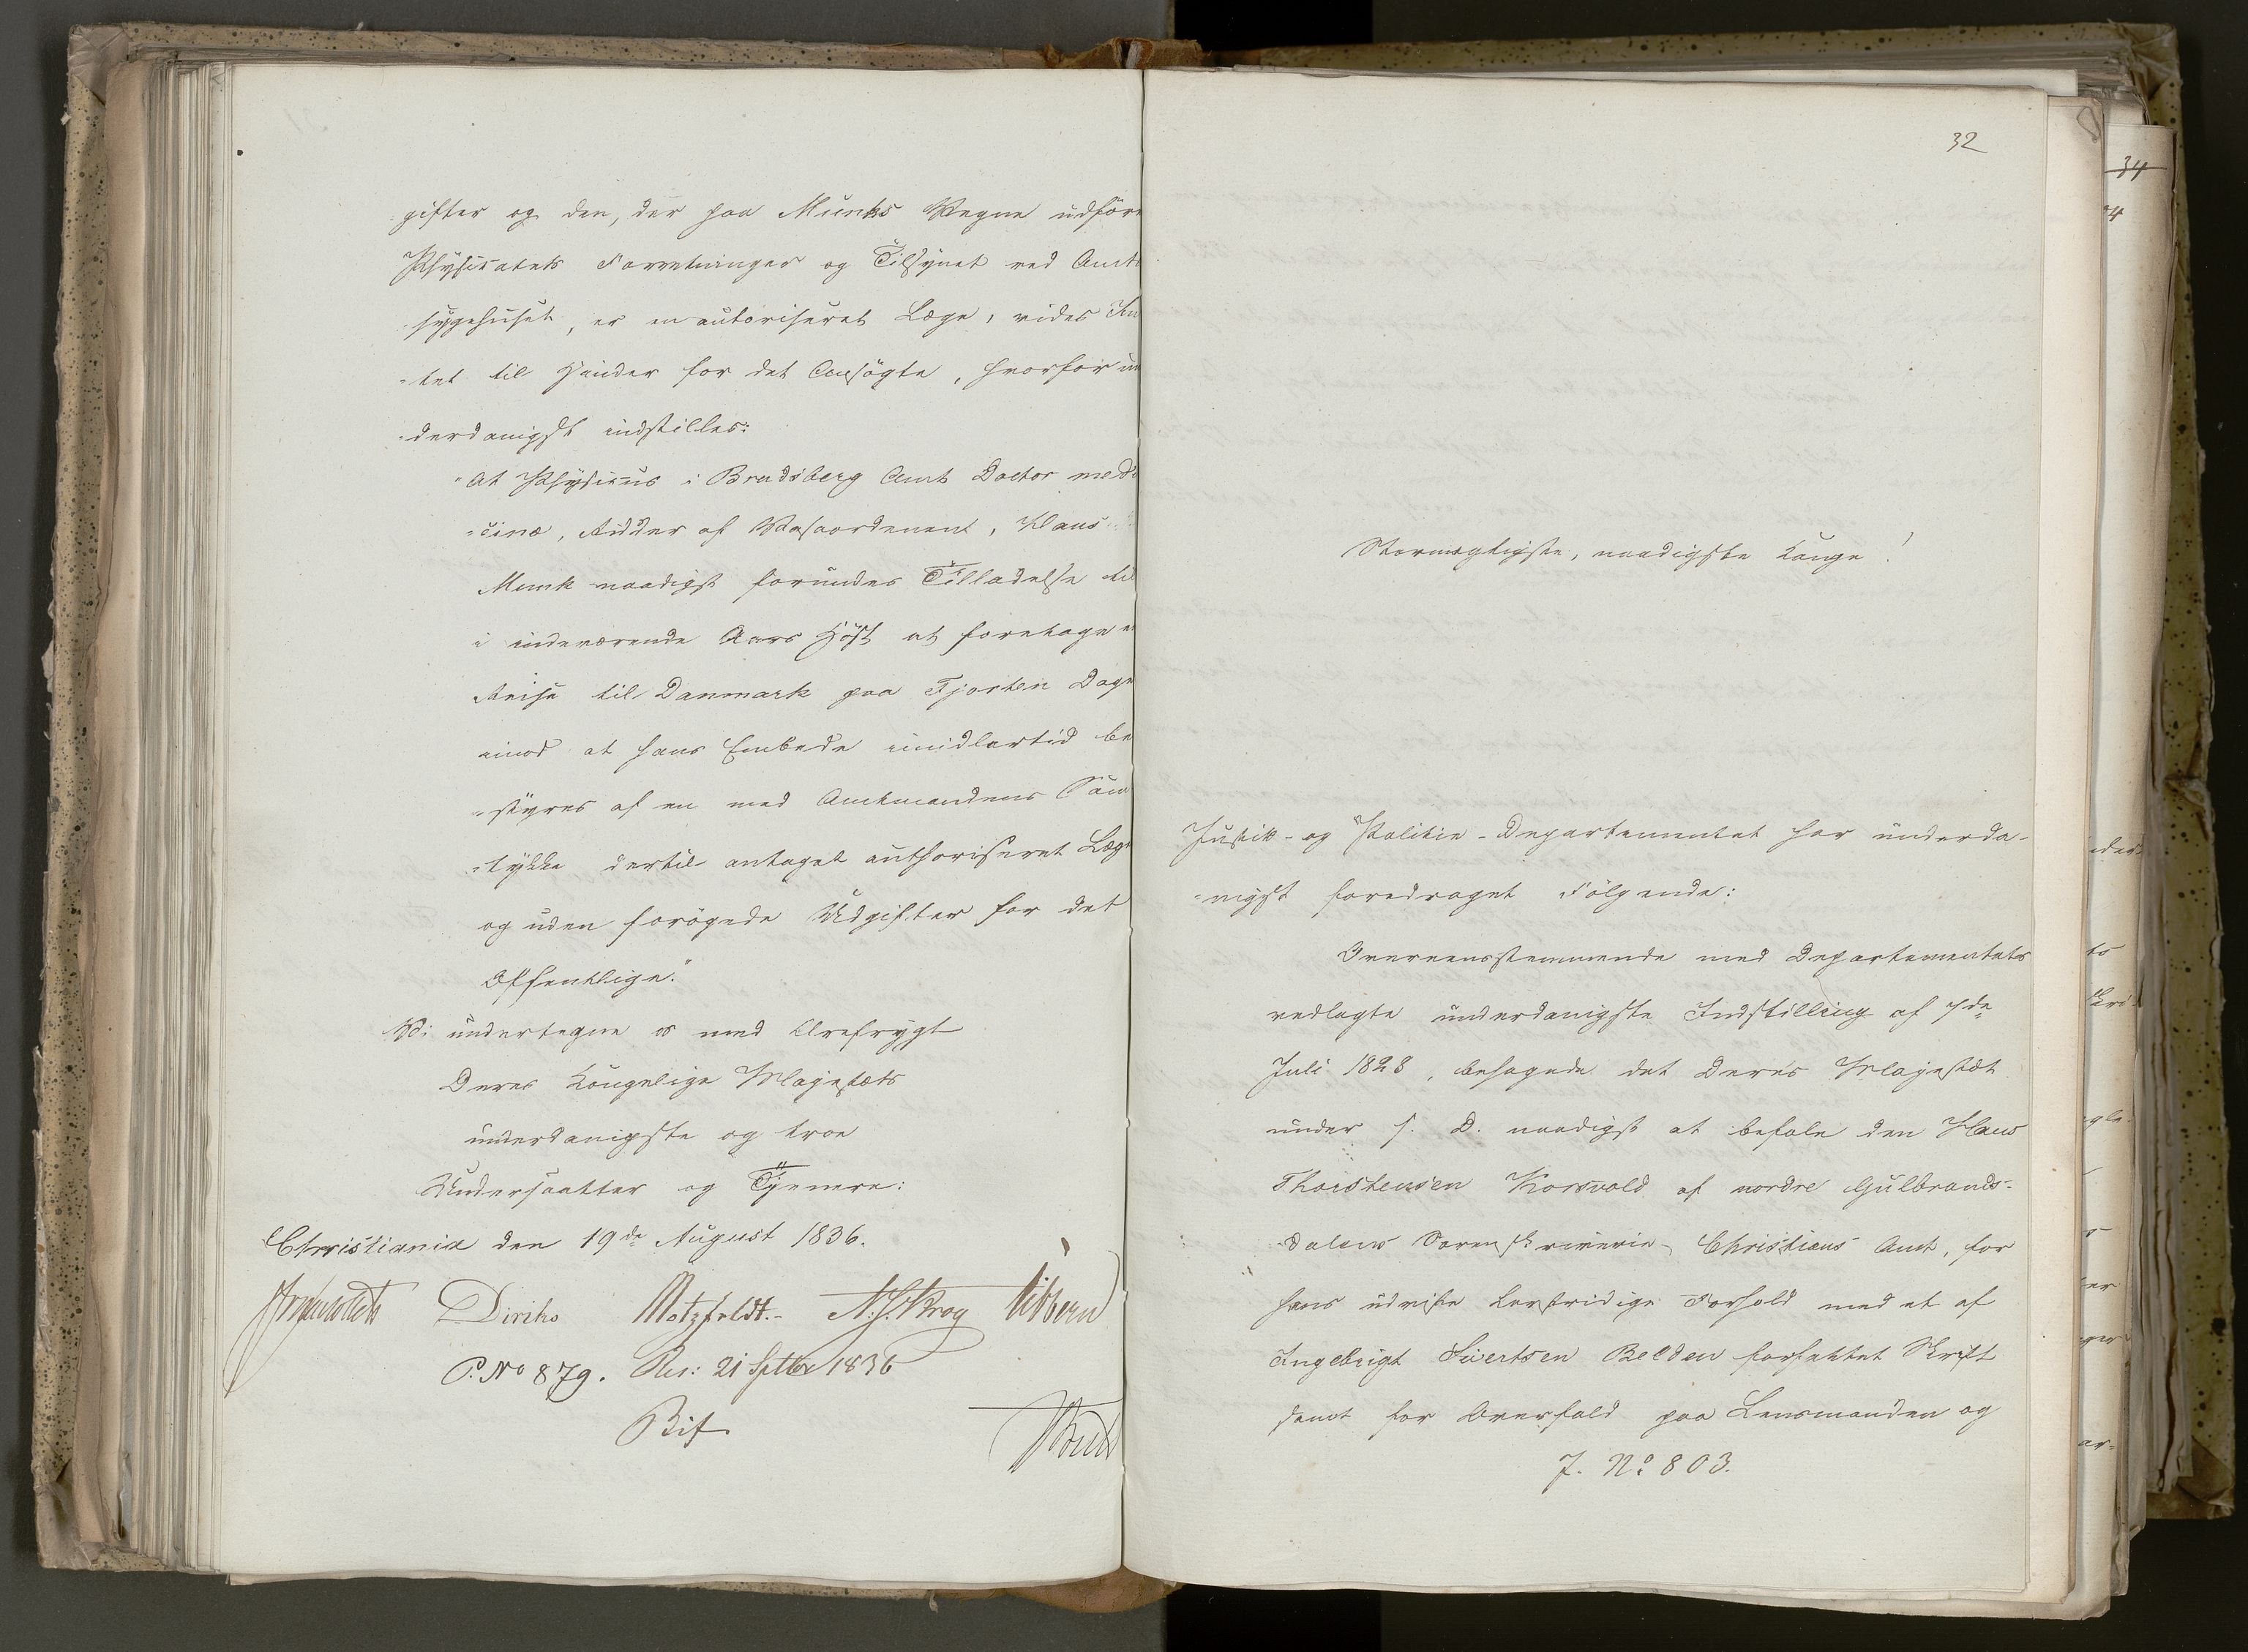 gifter og den, der paa Munks Vegne udföre
Physikatets Forretninger og Tilsynet ved Amts
sygehuset, er en autoriseret Læge, vides In
-tet til Hinder for det Ansögte, hvorfor un
-derdanigst indstilles:
"At Physikus i Bradsberg Amt Doctor medi
-cinæ, Ridder af Vasaordenent, Klaus
Munk naadigst forundes Tilladelse til
i indeværende Aars Höst at foretage en
Reise til Danmark paa Fjorten Dage
imod at hans Embede imidlertid be
-styres af en med Amtmandens Sam
-tykke dertil antaget authoriseret Læge
og uden forögede Udgifter for det
Offentlige."
Vi undertegne os med Ærefrygt
Deres Kongelige Majestæts
underdanigste og troe
Undersaatter og Tjenere:
Christiania den 19de August 1836.
Diriks Motzfeldt.- N. J. Krog Vibborn
P. No 879. Res: 21 Septbr 1836
Bif
32
Stormægtigste, naadigste Konge!
Justits- og Politie-Departementet har underda-
-nigst foredraget Fölgende:
Overeensstemmende med Departementets
vedlagte underdanigste Indstilling af 7de
Juli 1828, behagede det Deres Majestæt
under s. D. naadigst at befale den Hans
Thorstensen Korsvold af nordre Gulbrands-
-dalens Sorenskriverie, Christians Amt, for
hans udviste lovstridige Forhold med et af
Ingebrigt Sivertsen Belden forfattet Skrift
samt for Overfald paa Lensmanden og
J. No 803.
34